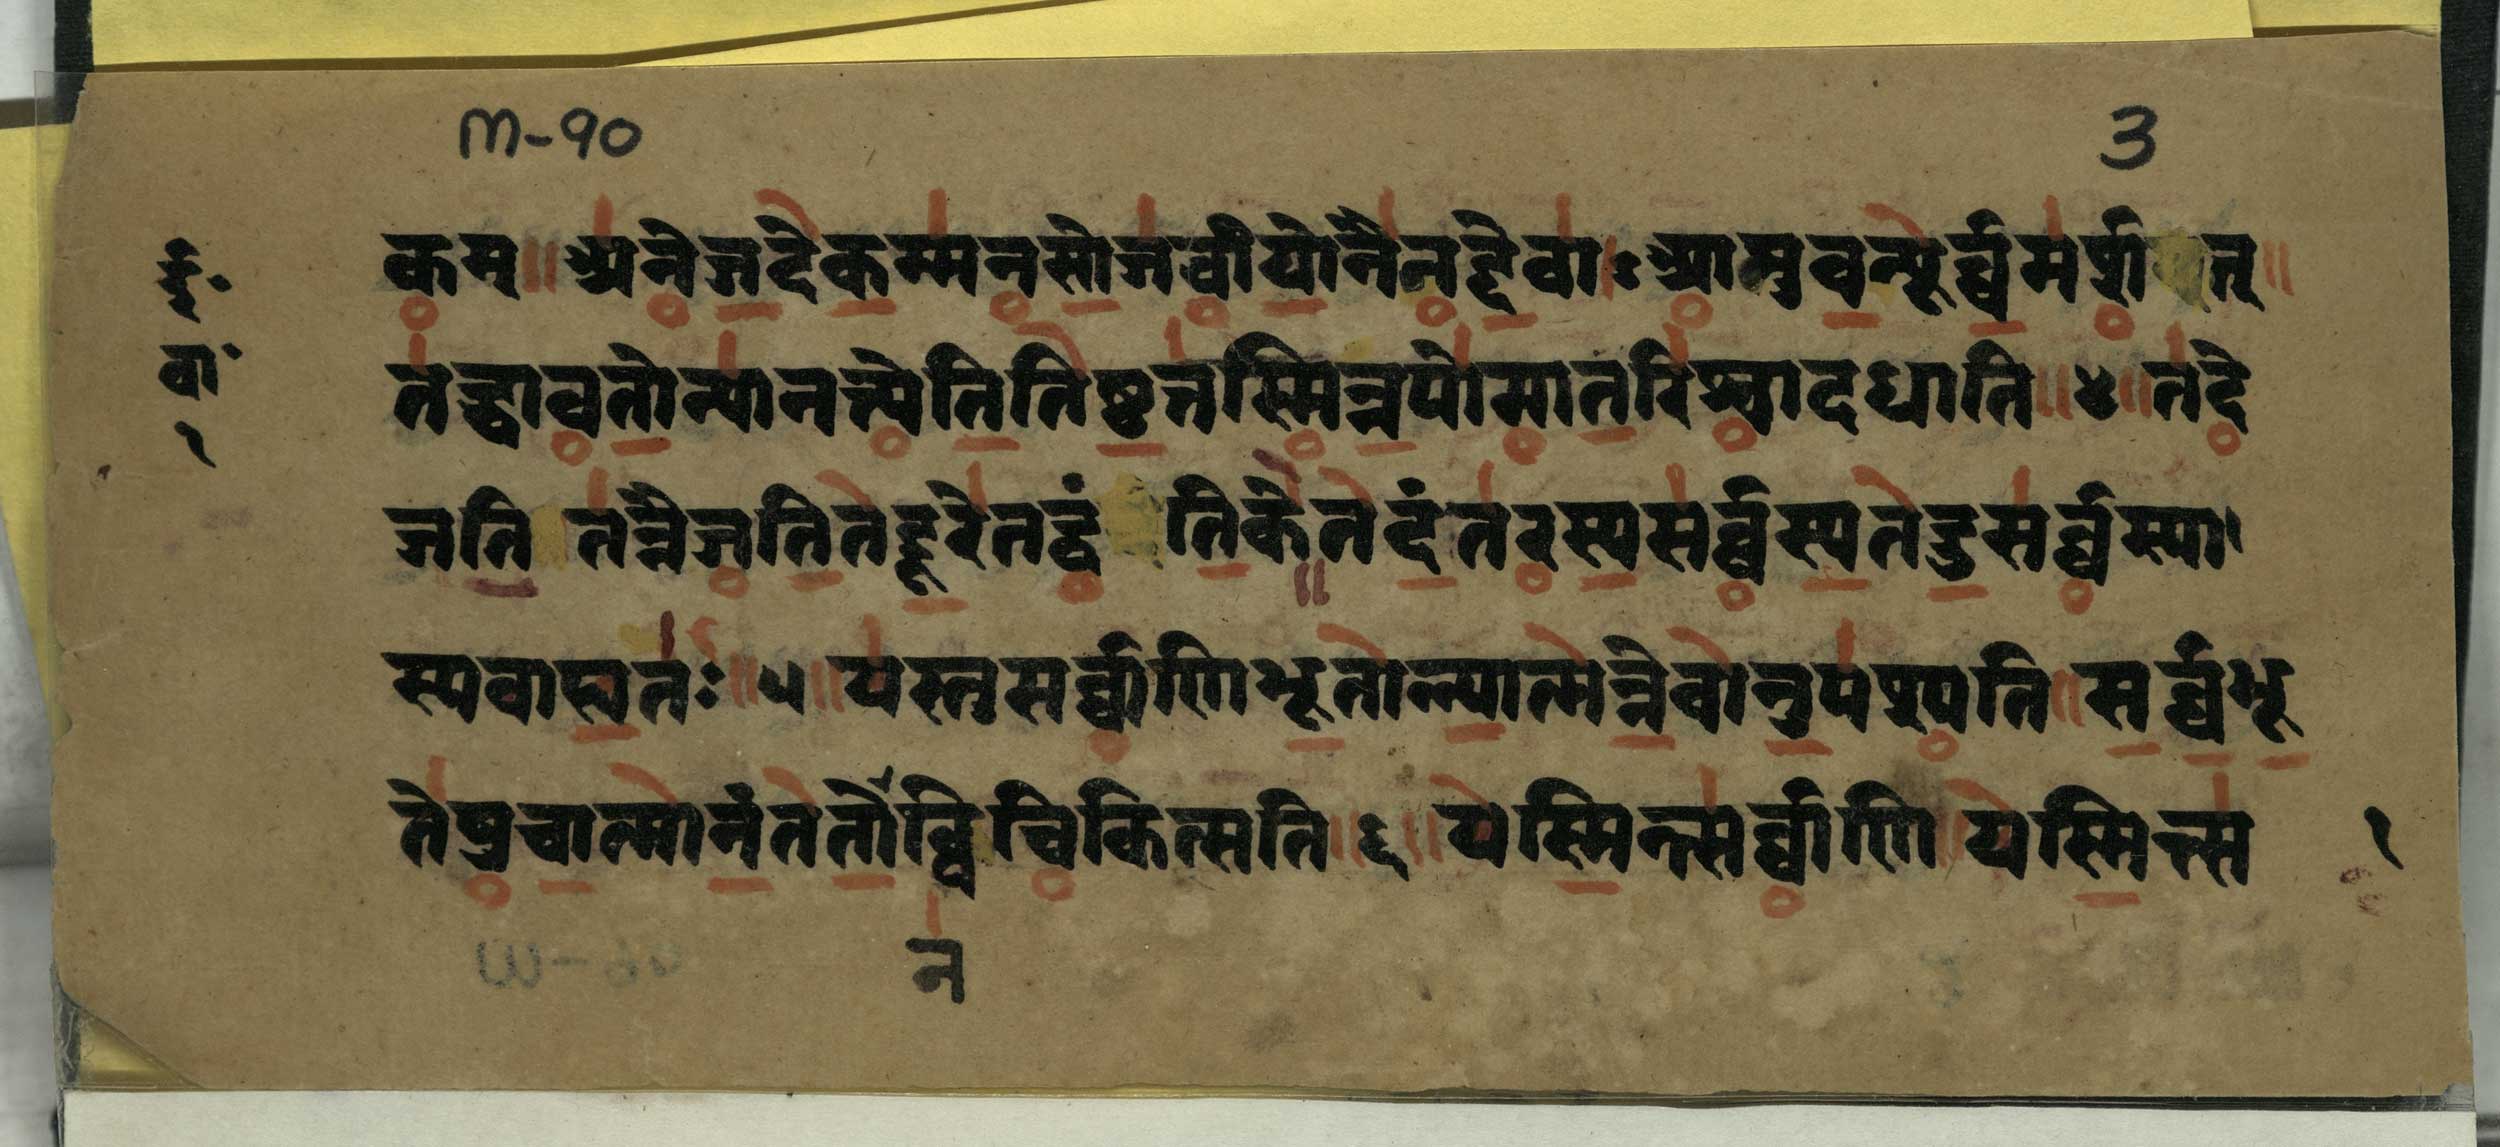 M-90
3
ई॰
वा॰
१
कम्॥ अनेजदेकम्मनसोजवीयोनैनद्देवाः आप्नुवन्पूर्व्वमर्षत्॥
तद्धावतोन्यानत्त्येतितिष्ठत्तस्मिन्नपोमातरिश्वादधाति॥४॥तदे
जति तन्नैजतितद्दूरेतद्वंतिके॥तदंतरस्यसर्व्वस्यतदुसर्व्वस्या
स्यवाह्यतः॥५॥यस्तुसर्व्वाणिभूतान्यात्मन्नेवानुपश्यति॥सर्व्वभू
तेषुचात्मानंततोविचिकित्सति॥६॥यस्मिन्त्सर्व्वाणि॥यस्मिन्त्स
१
न